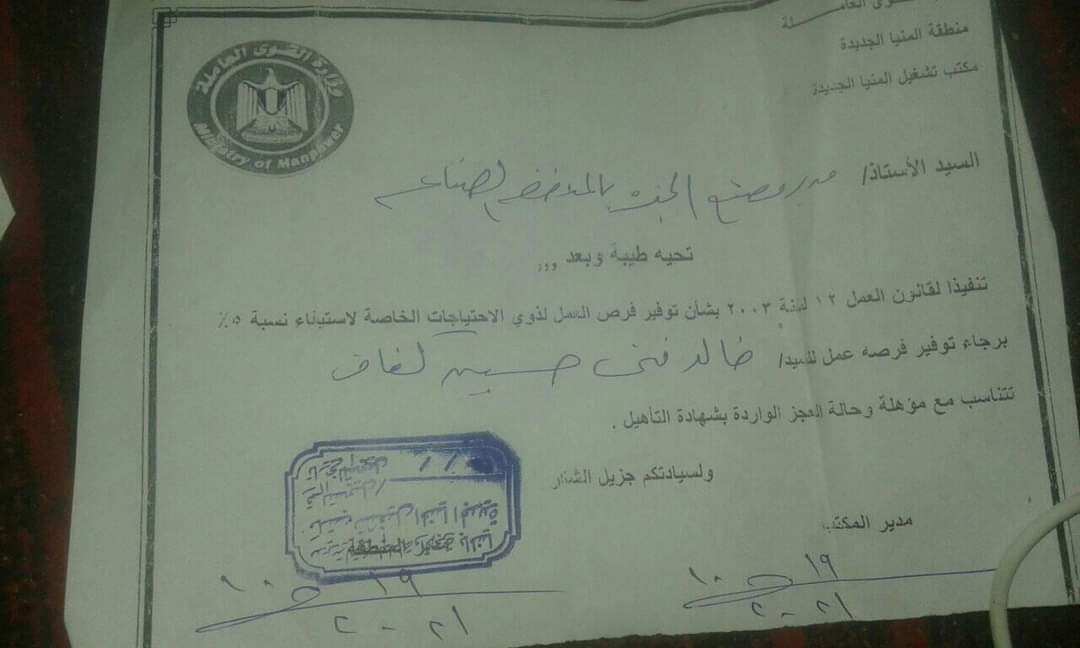 القوى العاملة
منطقة المنيا الجديدة
مكتب تشغيل المنيا الجديدة
وزارة القوى العاملة
Ministry of Manpower
السيد الأستاذ/ مدير مصنع
تحيه طيبة وبعد ,,,
تنفيذا لقانون العمل ١٢ لسنة ٢٠٠٣ بشأن توفير فرص العمل لذوي الاحتياجات الخاصة لاستيفاء نسبة ٥٪
برجاء توفير فرصه عمل للسيد/ خالد فتحى حسين
تتناسب مع مؤهلة وحالة العجز الواردة بشهادة التأهيل .
ولسيادتكم جزيل الشكر
مدير المكتب
١٩
١٠
٢٠٢١
١٩
١٠
٢٠٢١